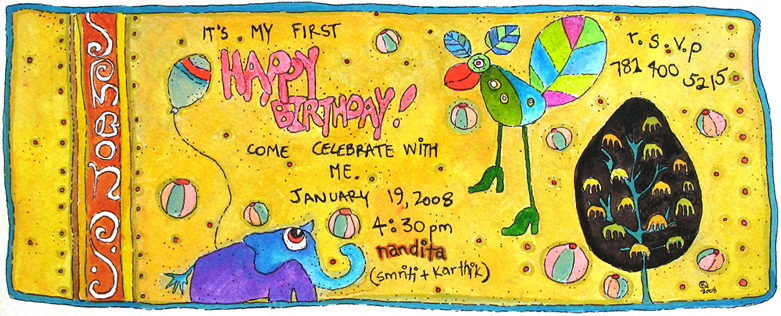 IT'S MY FIRST
HAPPY
BIRTHDAY!
COME CELEBRATE WITH
ME.
JANUARY 19, 2008
4:30 pm
nandita
(smriti + Karthik)
r.s.v.p
781 400 5215
2008